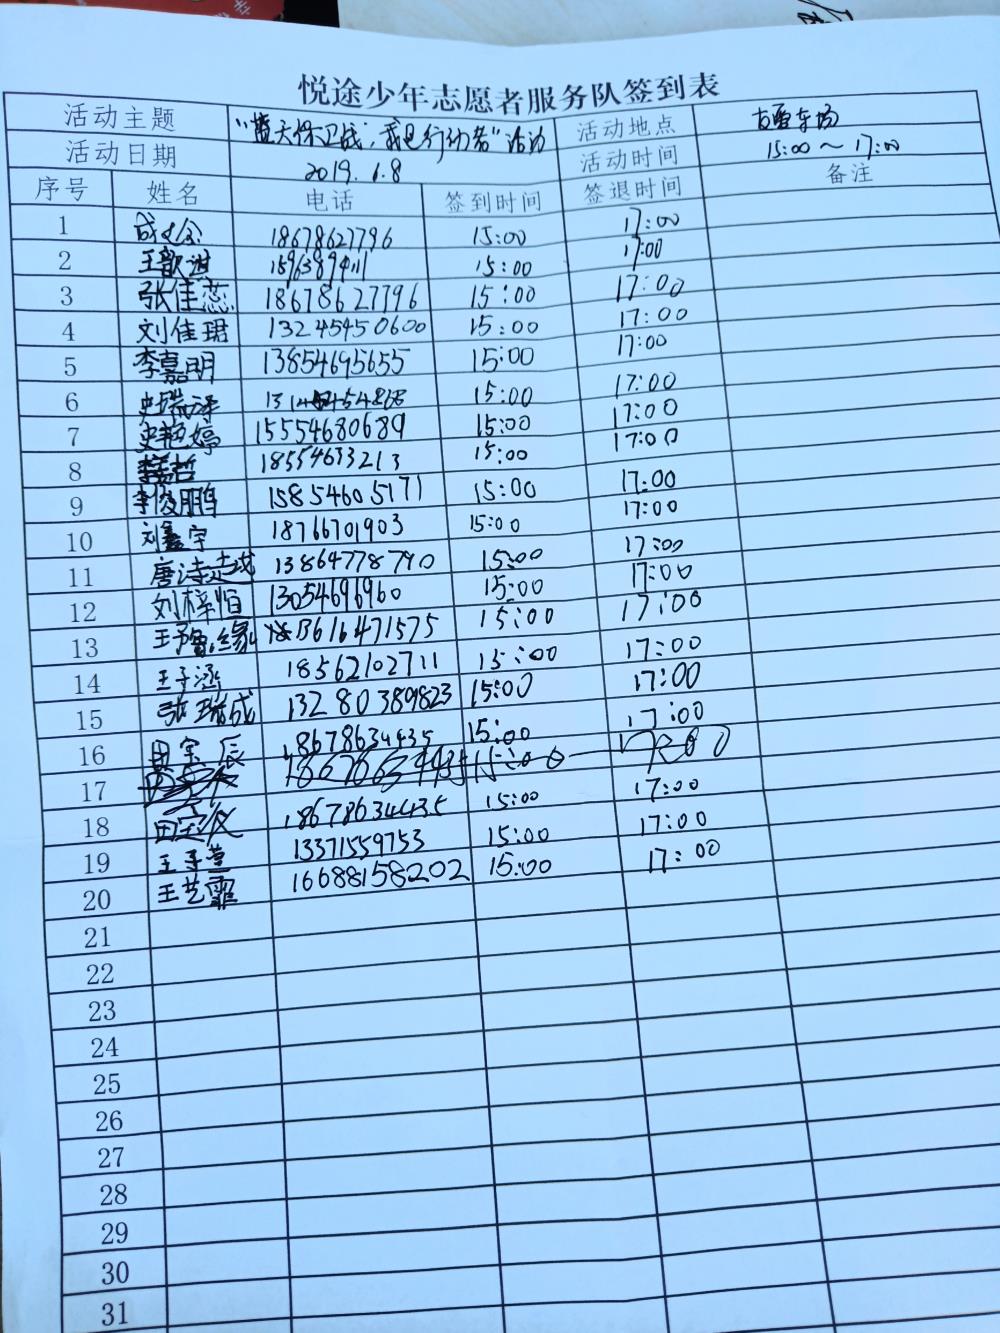 悦途少年志愿者服务队签到表
活动主题 "蓝天保卫战,我是行动者"活动 活动地点
活动日期 2019.6.8 活动时间 15:00～17:00
序号 姓名 电话 签到时间 签退时间 备注
1 18678627796 15:00 17:00
2 王歆淇 15:00 17:00
3 张佳蕊 18678627796 15:00 17:00
4 刘佳珺 13245450600 15:00 17:00
5 李嘉明 13854695655 15:00 17:00
6 史瑞泽 15:00 17:00
7 史艳婷 15554680689 15:00 17:00
8 18554633213 15:00 17:00
9 李俊鹏 15854605171 15:00 17:00
10 刘鑫宇 18766701903 15:00 17:00
11 唐诗 13864778790 15:00 17:00
12 刘梓恒 13054696960 15:00 17:00
13 13616471575 15:00 17:00
14 王子涵 18562102711 15:00 17:00
15 张瑞成 13280389823 15:00 17:00
16 田宝辰 18678634435 15:00 17:00
17
18 18678634435 15:00 17:00
19 王子萱 13371559753 15:00 17:00
20 王艺霏 16688158202 15:00 17:00
21
22
23
24
25
26
27
28
29
30
31